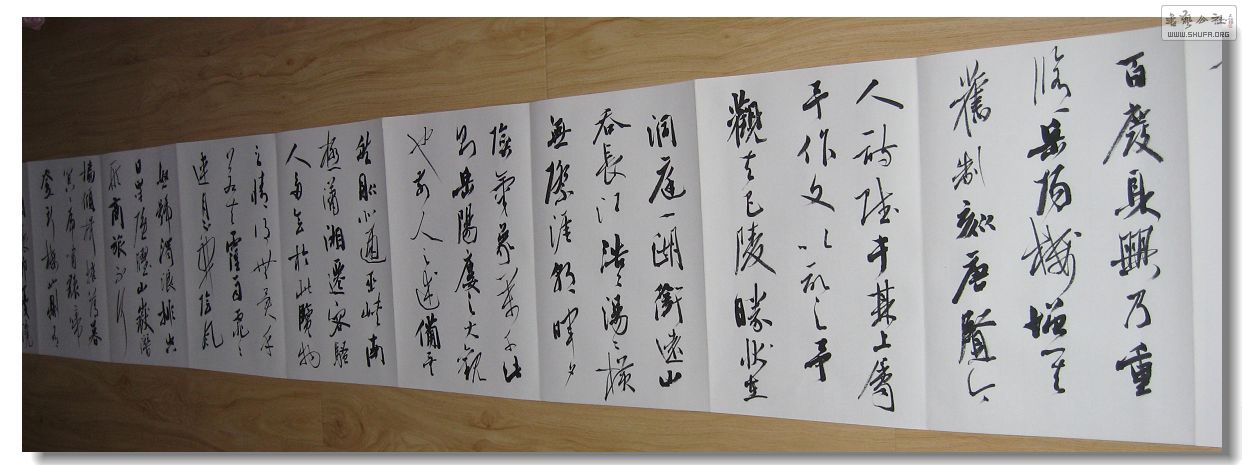 百廢具興乃重
脩岳陽樓增其
舊制刻唐賢今
人詩賦于其上屬
予作文以記之予
觀夫巴陵勝狀在
洞庭一湖銜遠山
吞長江浩〻湯〻橫
無際涯朝暉夕
陰氣象萬千此
則岳陽樓之大觀
也前人之述備矣
然則北通巫峽南
極瀟湘遷客騷
人多會於此覽物
之情得無異乎
若夫霪雨霏〻
連月不開陰風
怒號濁浪排空
日星隱曜山嶽潛
形商旅不行
檣傾楫摧薄暮
冥〻虎嘯猿啼
登斯樓也則有
書藝公社
WWW.SHUFA.ORG